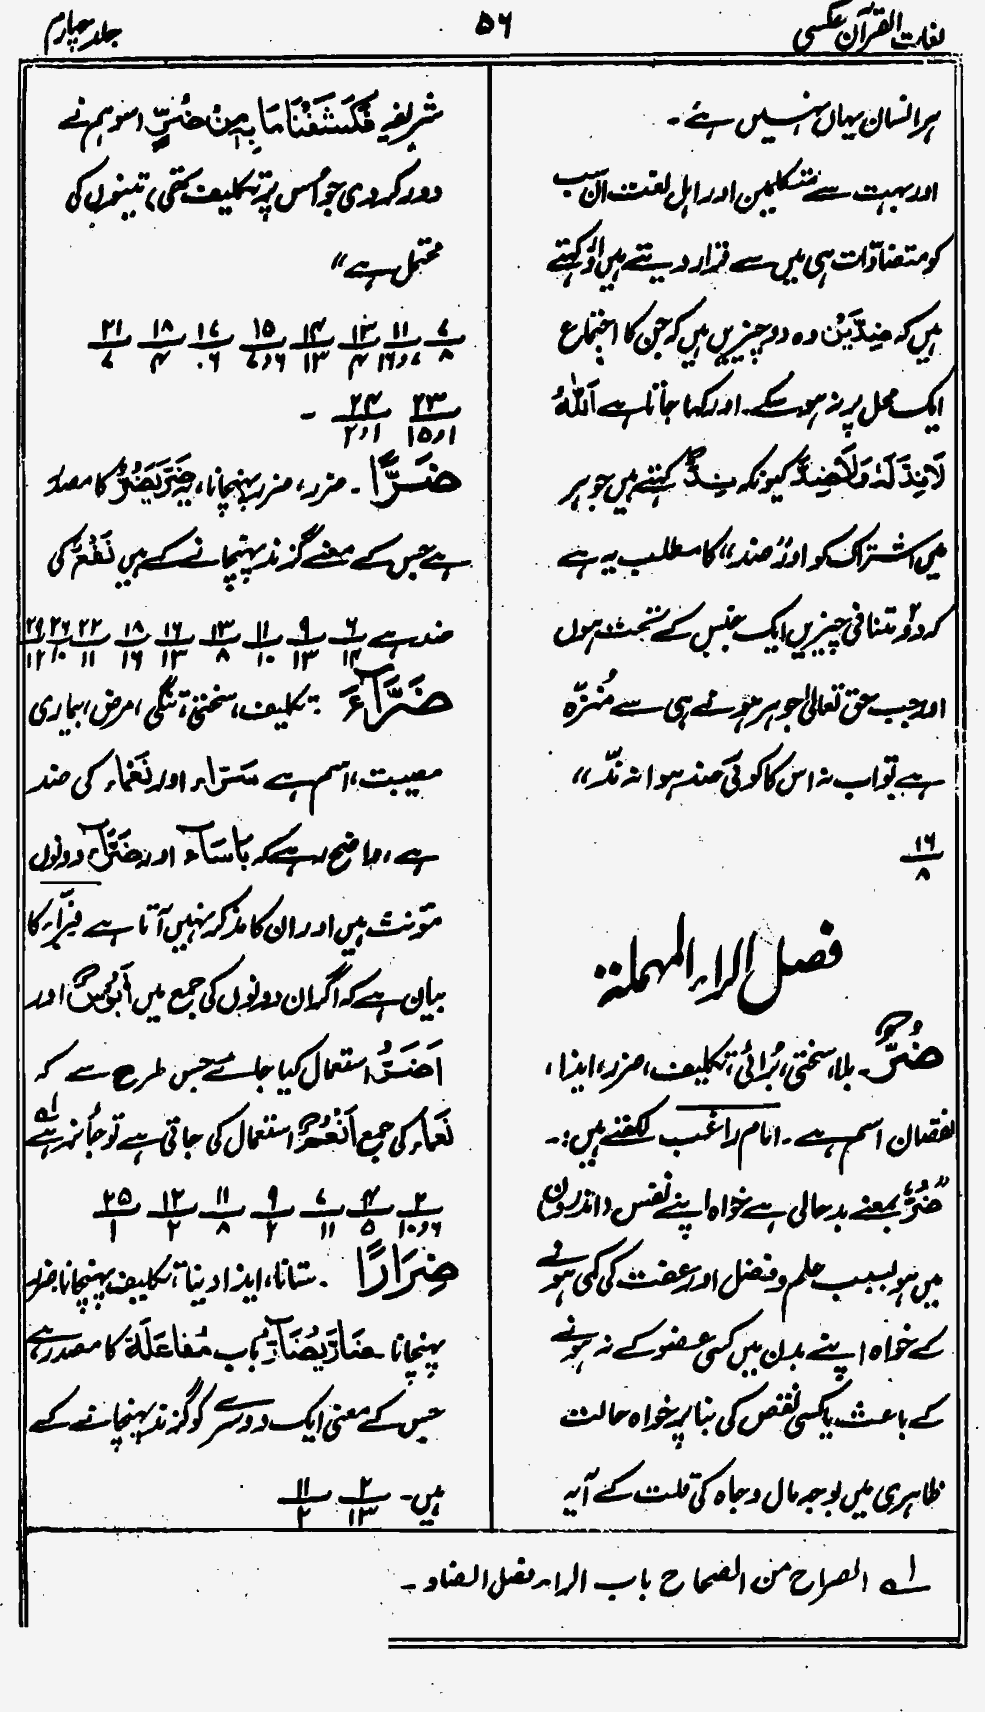 لغات القرآن عکسی
۵۶
جلد چہارم
ہر انسان یہاں نہیں ہے۔
اور بہت سے متکلمین اور اہل لغت ان سب
کو متضادّات ہی میں سے قرار دیتے ہیں اور کہتے
ہیں کہ ضِدَّیْن وہ دو چیزیں ہیں کہ جن کا اجتماع
ایک محل پر نہ ہو سکے۔ اور کہا جاتا ہے اَللّٰہُ
لَا نِدَّ لَہٗ وَلَا ضِدَّ کیونکہ نِدٌّ کہتے ہیں جوہر
میں اشتراک کو اور "ضد" کا مطلب یہ ہے
کہ دو متنافی چیزیں ایک جنس کے تحت ہوں
اور جب حق تعالیٰ جوہر ہونے ہی سے مُنزّہ
ہے تو اب نہ اس کا کوئی ضد ہوا نہ نِدّ"
۱۶
۸
فصل الراء المہملۃ
ضُرٌّ۔ بلا، سختی، بُرائی، تکلیف، ضرر، ایذا،
نقصان اسم ہے۔ امام راغب لکھتے ہیں:۔
"ضُرٌّ بمعنے بدحالی ہے خواہ اپنے نفس (اندرون)
میں ہو بسبب علم و فضل اور عفت کی کمی ہونے
کے خواہ اپنے بدن میں کسی عضو کے نہ ہونے
کے باعث یا کسی نقص کی بنا پر خواہ حالت
ظاہری میں بوجہ مال و جاہ کی قلت کے آیہ
شریفہ فَکَشَفْنَا مَا بِہٖ مِنْ ضُرٍّ (سو ہم نے
دور کر دی جو اس پر تکلیف تھی) تینوں کی
محتمل ہے"
۷ ۱۱ ۱۳ ۱۴ ۱۵ ۱۷ ۱۸ ۲۱
۸ ۷و۱۶ ۴ ۱۳ ۶و۷ ۶۰ ۴ ۷
۲۳ ۲۴
۱و۱۵ ۱و۲ ۔
ضَرًّا۔ ضرر، ضرر پہنچانا، یہ ضَرَّ یَضُرُّ کا مصدر
ہے جس کے معنے گزند پہنچانے کے ہیں نَفْعٌ کی
ضد ہے ۶ ۹ ۱۱ ۱۳ ۱۶ ۱۸ ۲۲ ۲۶ ۲۹
۱۴ ۱۳ ۱۰ ۸ ۱۳ ۱۶ ۱۱ ۱۰ ۱۲
ضَرَّآءَ۔ تکلیف، سختی، تنگی، مرض، بیماری
مصیبت، اسم ہے سَرَّاء اور نَعْمَاء کی ضد
ہے، واضح رہے کہ بَاْسَآء اور ضَرَّآء دونوں
مؤنث ہیں اور ان کا مذکر نہیں آتا ہے فرّاء کا
بیان ہے کہ اگر ان دونوں کی جمع میں اَبْؤُسٌ اور
اَضُرٌّ استعمال کیا جائے جس طرح سے کہ
نَعْمَاء کی جمع اَنْعُمٌ استعمال کی جاتی ہے تو جائز ہے ؂۱
۲ ۴ ۷ ۹ ۱۱ ۱۲ ۲۵
۶و۱۰ ۵ ۱۱ ۲ ۸ ۲ ۱
ضِرَارًا۔ ستانا، ایذا دینا، تکلیف پہنچانا، ضرر
پہنچانا ضَارَّ یُضَارُّ باب مُفَاعَلَۃ کا مصدر ہے
جس کے معنی ایک دوسرے کو گزند پہنچانے کے
ہیں۔ ۲ ۱۱
۱۳ ۲
؂۱ الصراح من الصحاح باب الراء فصل الضاد۔